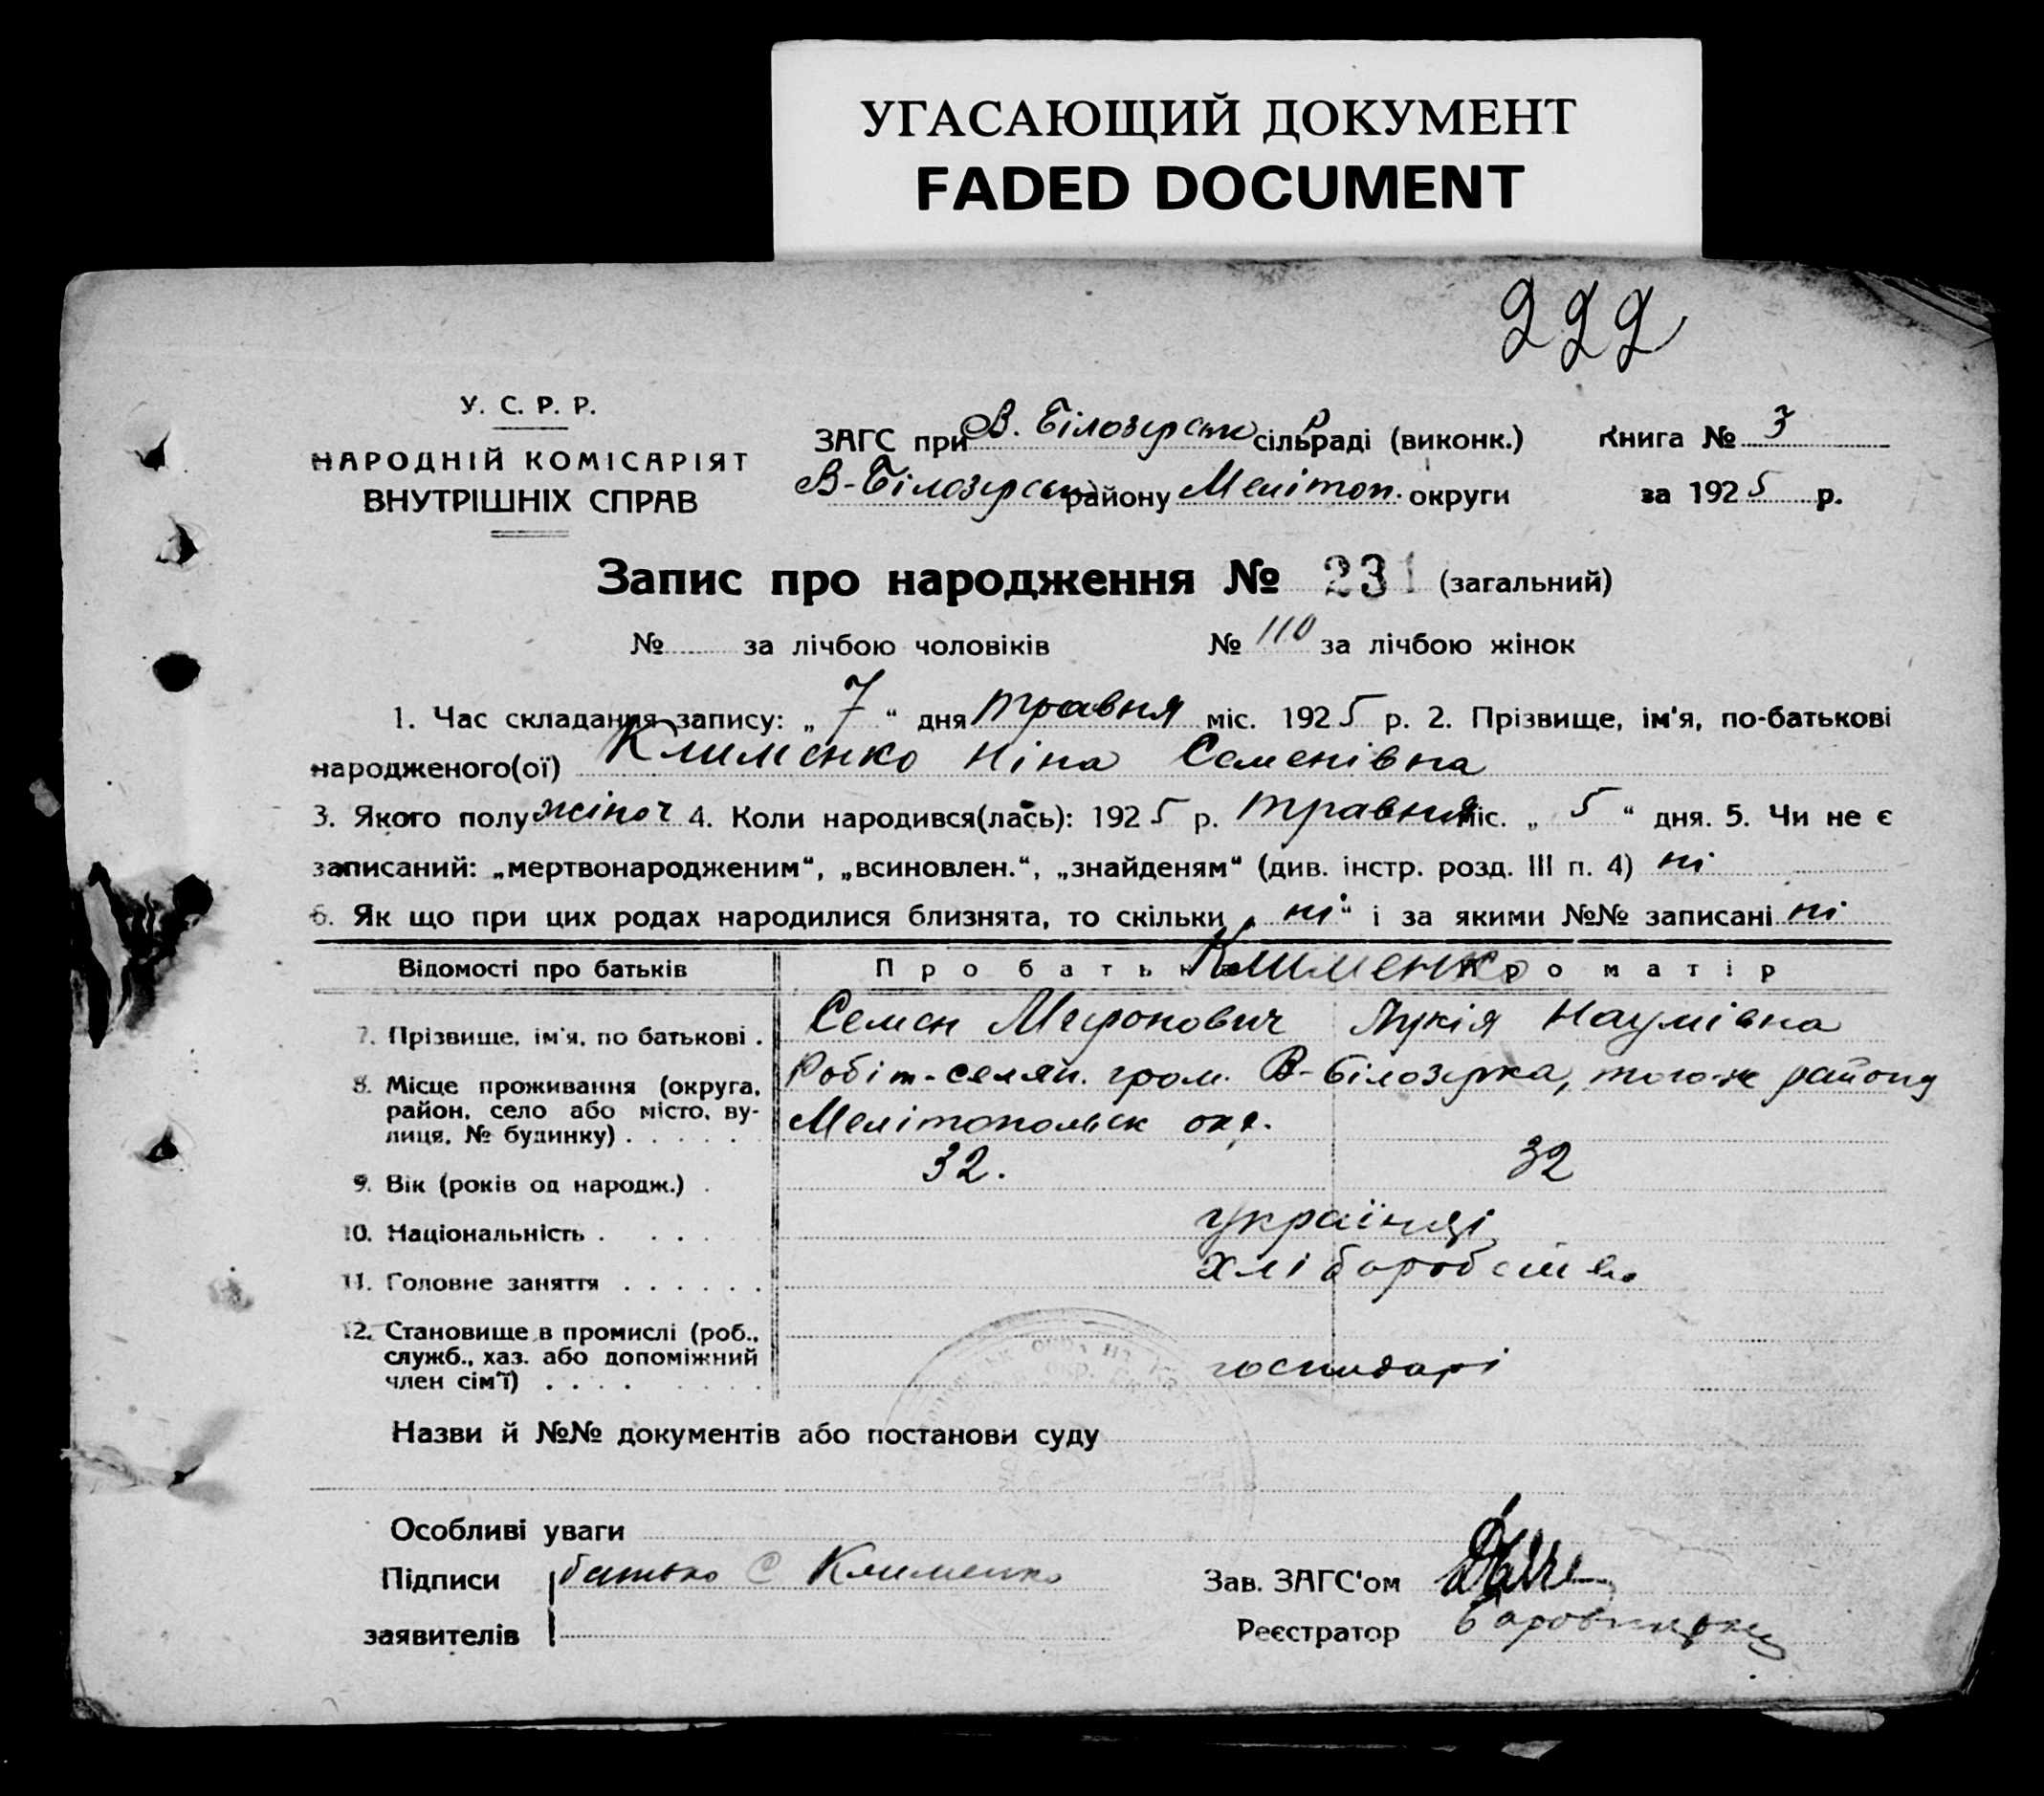 УГАСАЮЩИЙ ДОКУМЕНТ
FADED DOCUMENT
222
У. С. Р. Р.
НАРОДНІЙ КОМІСАРІЯТ
ВНУТРІШНІХ СПРАВ
ЗАГС при В. Білозірськ сільраді (виконк.) Книга № 3
В-Білозірськ району Мелітоп. округи за 1925 р.
Запис про народження № 231 (загальний)
№ за лічбою чоловіків № 110 за лічбою жінок
1. Час складання запису: „ 7 “ дня травня міс. 1925 р. 2. Прізвище, ім'я, по-батькові
народженого(ої) Клименко Ніна Семенівна
3. Якого полу жіноч 4. Коли народився(лась): 1925 р. травня міс. „ 5 “ дня. 5. Чи не є
записаний: „мертвонародженим“, „всиновлен.“, „знайденям“ (див. інстр. розд. III п. 4) ні
6. Як що при цих родах народилися близнята, то скільки „ ні “ і за якими №№ записані ні
Відомості про батьків Про батька Про матір
Клименко
7. Прізвище, ім'я, по батькові . Семен Миронович Лукія Наумівна
8. Місце проживання (округа, Робіт-селян. гром. В-Білозірка, того-ж району
район, село або місто, ву-
лиця, № будинку) . . . . . Мелітопольск окр.
9. Вік (років од народж.) . 32. 32
10. Національність . . . . українці
11. Головне заняття . . . . . . хліборобство
12. Становище в промислі (роб.,
служб., хаз. або допоміжний
член сім'ї) . . . . господарі
Назви й №№ документів або постанови суду
Особливі уваги
Підписи батько С Клименко Зав. ЗАГС'ом
заявителів Реєстратор